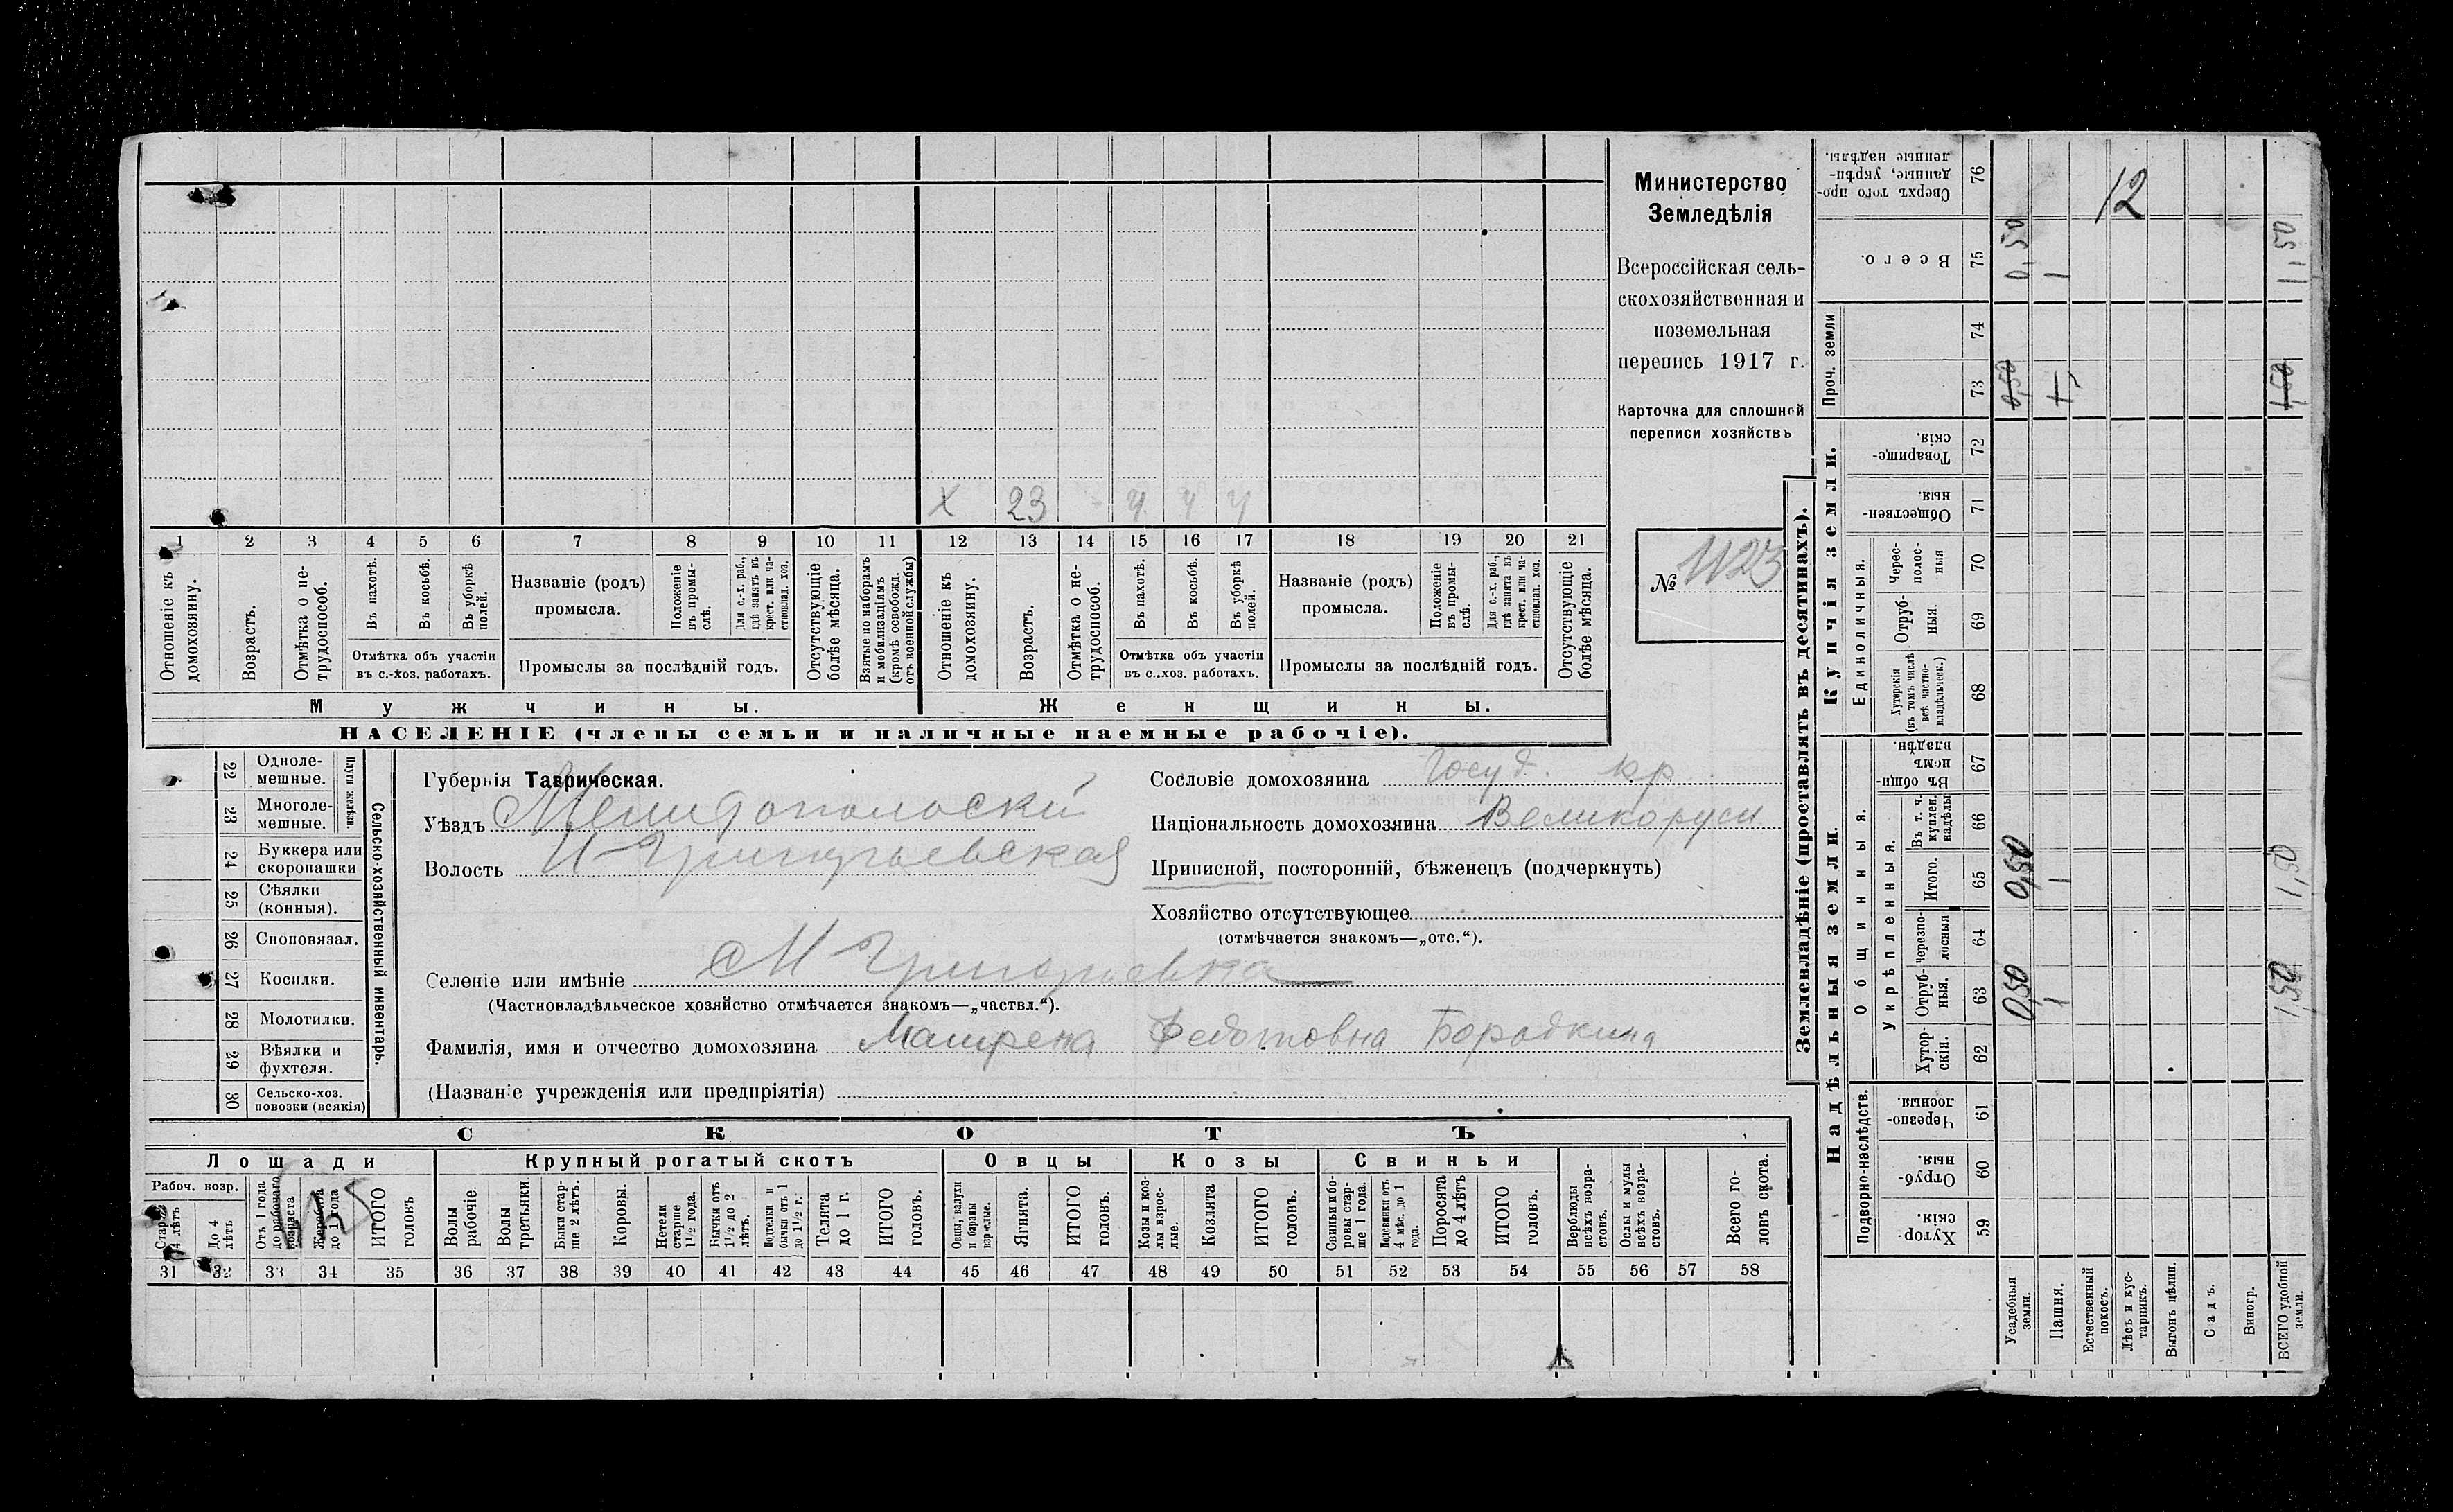 Министерство
Земледѣлія
Всероссійская сель-
скохозяйственная и
поземельная
перепись 1917 г.
Карточка для сплошной
переписи хозяйствъ
№ 1123
X 23 ч ч ч
1 2 3 4 5 6 7 8 9 10 11 12 13 14 15 16 17 18 19 20 21
Отношеніе къ домохозяину.
Возрастъ.
Отмѣтка о не-трудоспособ.
Въ пахотѣ.
Въ косьбѣ.
Въ уборкѣ полей.
Отмѣтка объ участіи
въ с.-хоз. работахъ.
Названіе (родъ)
промысла.
Положеніе въ промы-слѣ.
Для с.-х. раб., гдѣ занятъ въ крест. или ча-стновлад. хоз.
Промыслы за послѣдній годъ.
Отсутствующіе болѣе мѣсяца.
Взятые по наборамъ и мобилизаціямъ (кромѣ освобожд. отъ военной службы)
Отношеніе къ домохозяину.
Возрастъ.
Отмѣтка о не-трудоспособ.
Въ пахотѣ.
Въ косьбѣ.
Въ уборкѣ полей.
Отмѣтка объ участіи
въ с.-хоз. работахъ.
Названіе (родъ)
промысла.
Положеніе въ промы-слѣ.
Для с.-х. раб., гдѣ занята въ крест. или ча-стновлад. хоз.
Промыслы за послѣдній годъ.
Отсутствующіе болѣе мѣсяца.
Мужчины. Женщины.
НАСЕЛЕНІЕ (члены семьи и наличные наемные рабочіе).
22 Одноле-мешные.
23 Многоле-мешные.
Плуги желѣзн.
24 Буккера или скоропашки
25 Сѣялки (конныя).
26 Сноповязал.
27 Косилки.
28 Молотилки.
29 Вѣялки и фухтеля.
30 Сельско-хоз. повозки (всякія)
Сельско-хозяйственный инвентарь.
Губернія Таврическая.
Уѣздъ Мелитопольскій
Волость Григорьевская
Селеніе или имѣніе М Григорьевка
(Частновладѣльческое хозяйство отмѣчается знакомъ—„частвл.“).
Фамилія, имя и отчество домохозяина Матрена Федотовна Бородкина
(Названіе учрежденія или предпріятія)
Сословіе домохозяина Госуд. кр.
Національность домохозяина Великорусс
Приписной, посторонній, бѣженецъ (подчеркнуть)
Хозяйство отсутствующее
(отмѣчается знакомъ—„отс.“).
СКОТЪ
Лошади Крупный рогатый скотъ Овцы Козы Свиньи
Рабоч. возр.
Старше 4 лѣтъ
До 4 лѣтъ
Отъ 1 года до рабочаго возраста
Жеребята до 1 года
ИТОГО головъ
Волы рабочіе.
Волы третьяки.
Быки стар-ше 2 лѣтъ.
Коровы.
Нетели старше 1½ года.
Бычки отъ 1½ до 2 лѣтъ.
Подтелки и бычки отъ 1 до 1½ г.
Телята до 1 г.
ИТОГО головъ.
Овцы, валухи и бараны взрослые.
Ягнята.
ИТОГО головъ.
Козы и коз-лы взрос-лые.
Козлята
ИТОГО головъ.
Свиньи и бо-ровы стар-ше 1 года.
Подсвинки отъ 4 мѣс. до 1 года.
Поросята до 4 лѣтъ
ИТОГО головъ.
Верблюды всѣхъ возра-стовъ.
Ослы и мулы всѣхъ возра-стовъ.
Всего го-ловъ скота.
31 32 33 34 35 36 37 38 39 40 41 42 43 44 45 46 47 48 49 50 51 52 53 54 55 56 57 58
Землевладѣніе (проставлять въ десятинахъ).
Надѣльныя земли. Купчія земли. Проч. земли
Подворно-наслѣдств.
Общинныя.
Укрѣпленныя.
Единоличныя.
Сверхъ того про-данные, укрѣп-ленные надѣлы. 76 12
Всего. 75 0,50 1 1,50
74
73 0,50 1 1,50
Товарище-скія. 72
Обществен-ныя. 71
Черес-полос-ныя 70
Отруб-ныя. 69
Хуторскія (въ томъ числѣ всѣ частно-владѣльческ.) 68
Въ общи-номъ владѣн. 67
Въ т. ч. куплен. надѣлы 66
Итого. 65 0,50 1 1,50
черезпо-лосныя 64
Отруб-ныя. 63 0,50 1 1,50
Хутор-скія. 62
Черезпо-лосныя. 61
Отруб-ныя. 60
Хутор-скія. 59
Усадебныя земли.
Пашня.
Естественный покосъ.
Лѣсъ и кус-тарникъ.
Выгонъ цѣлин.
Садъ.
Виногр.
ВСЕГО удобной земли.